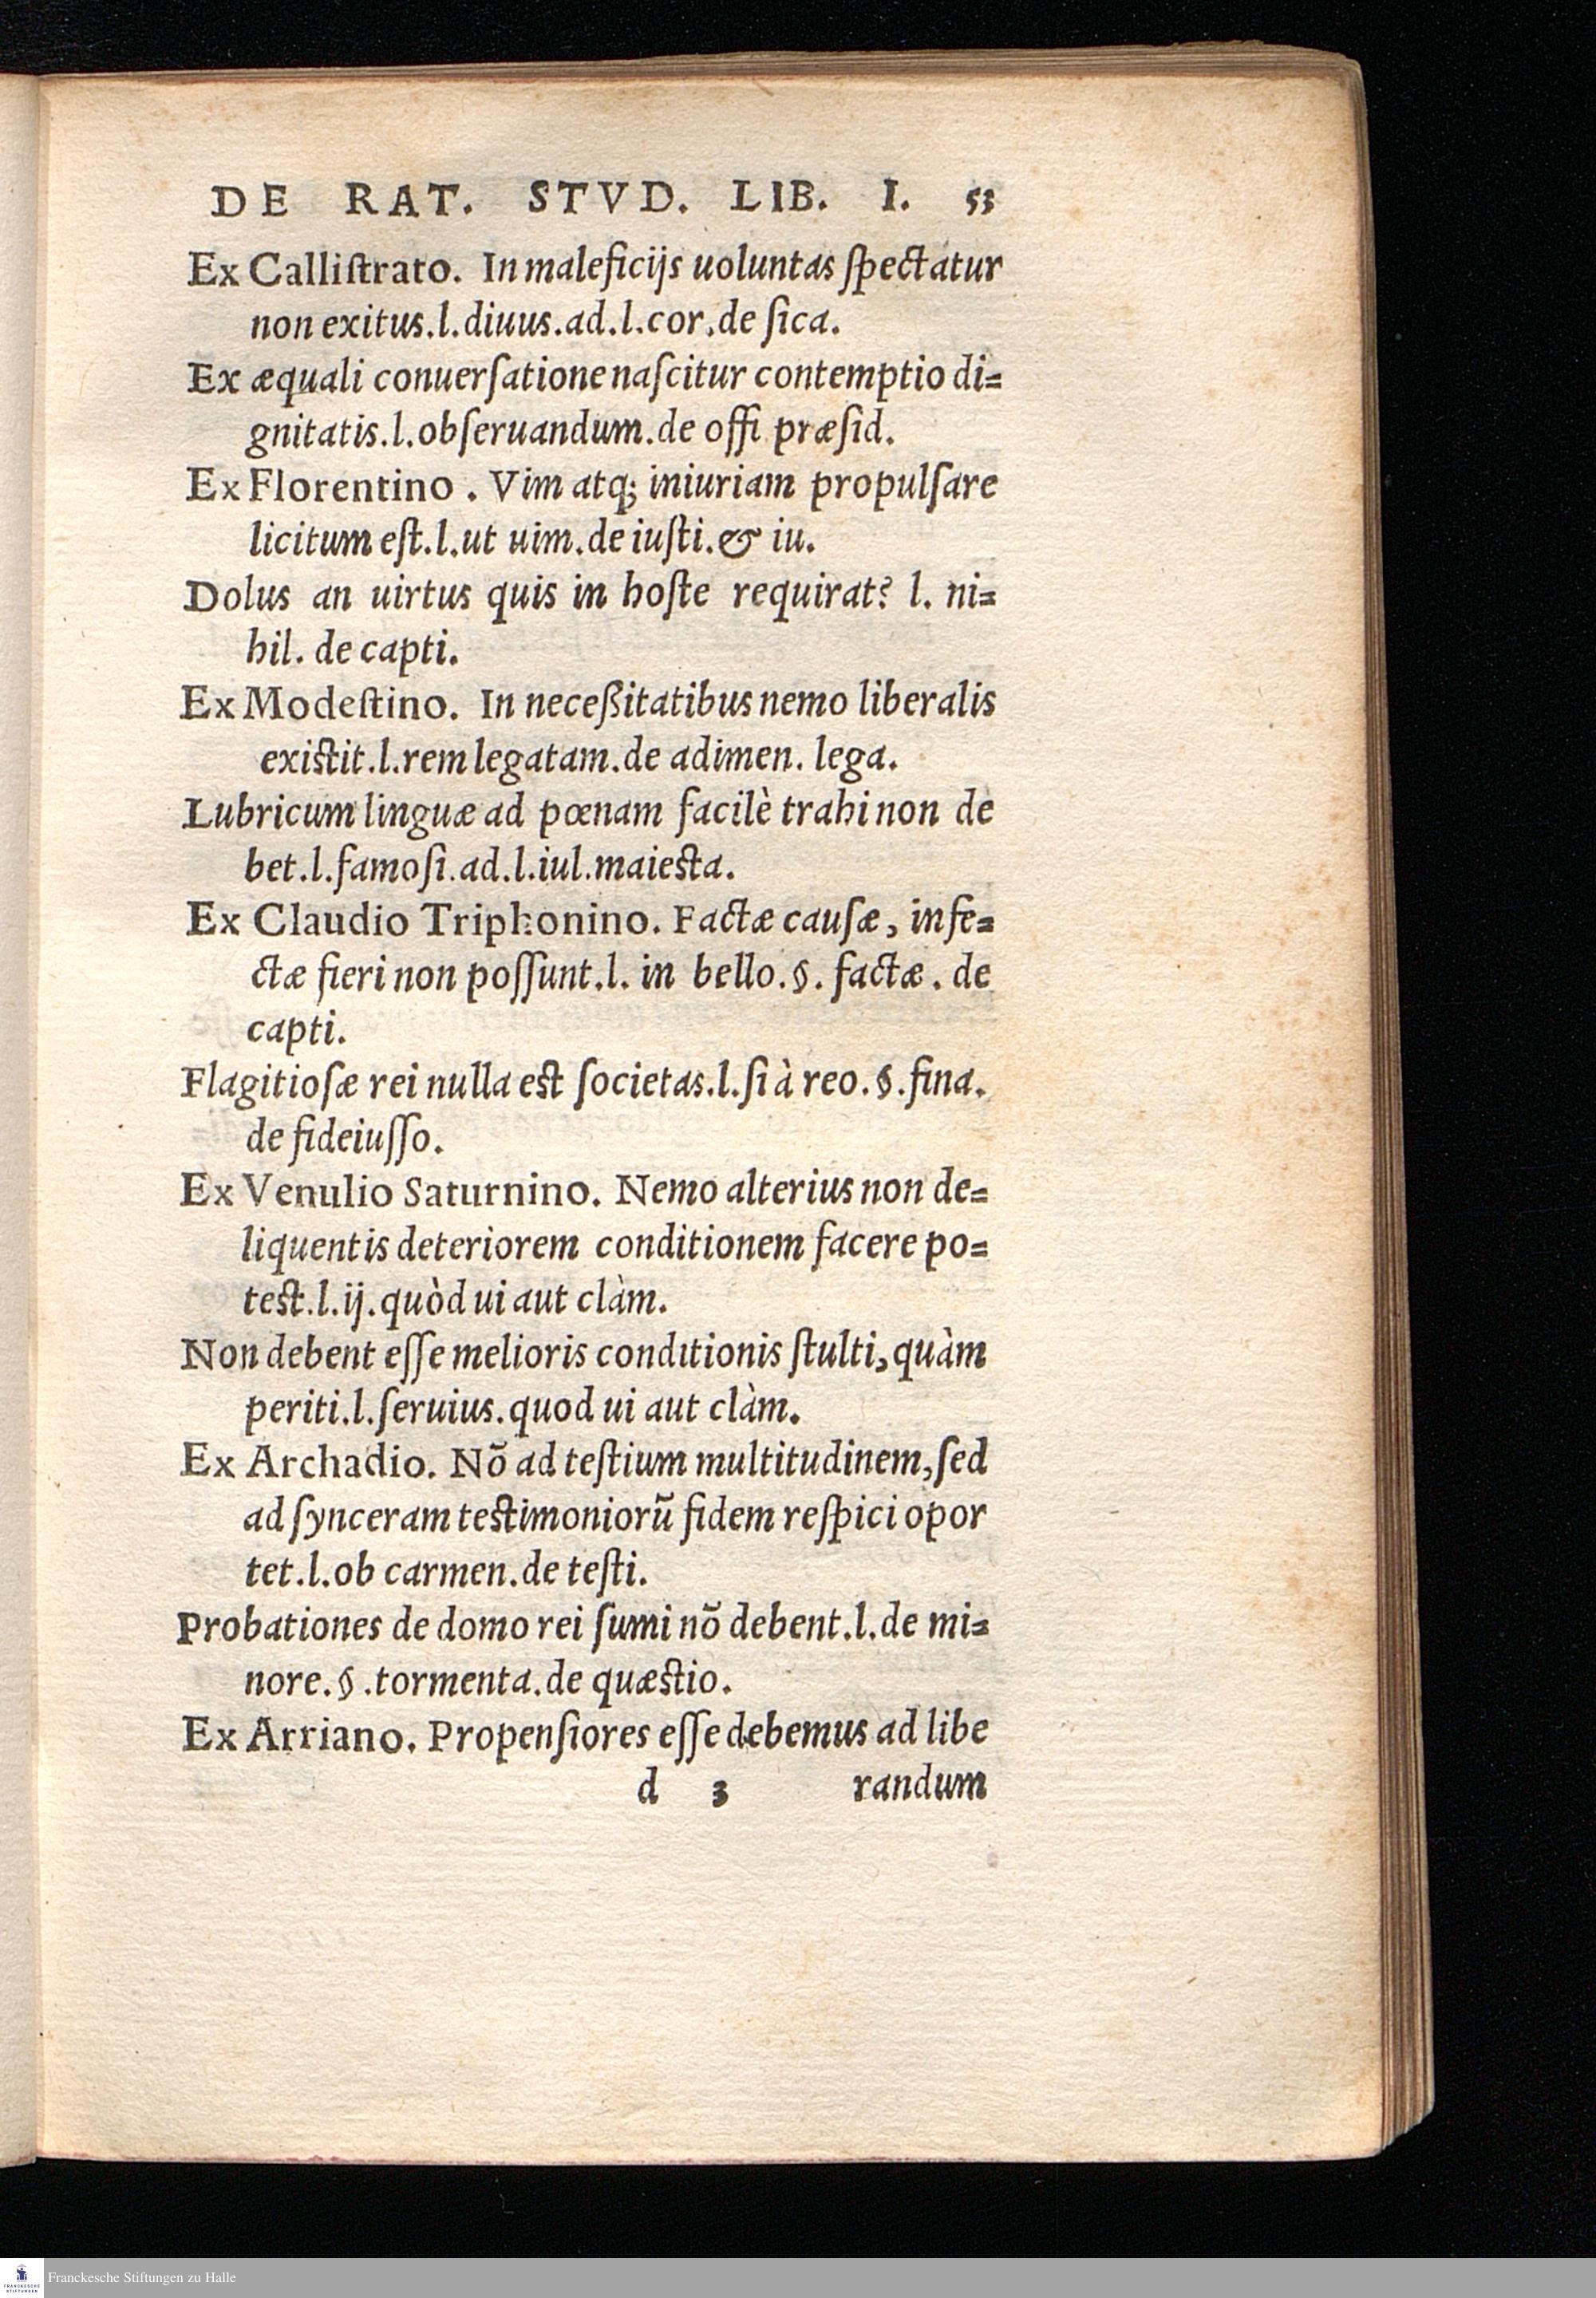 DE RAT. STVD. LIB. I. 53
Ex Calliſtrato. In maleficijs uoluntas ſpectatur
non exitus.l.diuus.ad.l.cor.de ſica.
Ex æquali conuerſatione naſcitur contemptio di=
gnitatis.l.obſeruandum.de offi præſid.
Ex Florentino. Vim atq; iniuriam propulſare
licitum eſt.l.ut uim.de iuſti.& iu.
Dolus an uirtus quis in hoſte requirat? l. ni=
hil. de capti.
Ex Modeſtino. In neceßitatibus nemo liberalis
existit.l.rem legatam.de adimen. lega.
Lubricum linguæ ad pœnam facilè trahi non de
bet.l.famoſi.ad.l.iul.maiesta.
Ex Claudio Triphonino. Factæ cauſæ, infe=
ctæ fieri non poſſunt.l. in bello.§. factæ. de
capti.
Flagitioſæ rei nulla est ſocietas.l.ſi à reo.§.fina.
de fideiuſſo.
Ex Venulio Saturnino. Nemo alterius non de=
liquentis deteriorem conditionem facere po=
test.l.ij.quòd ui aut clàm.
Non debent eſſe melioris conditionis ſtulti, quàm
periti.l.ſeruius.quod ui aut clàm.
Ex Archadio. Nõ ad teſtium multitudinem, ſed
ad ſynceram testimoniorũ fidem reſpici opor
tet.l.ob carmen.de teſti.
Probationes de domo rei ſumi nõ debent.l.de mi=
nore.§.tormenta.de quæstio.
Ex Arriano. Propenſiores eſſe debemus ad libe
d 3 randum
FRANCKESCHE STIFTUNGEN Franckesche Stiftungen zu Halle